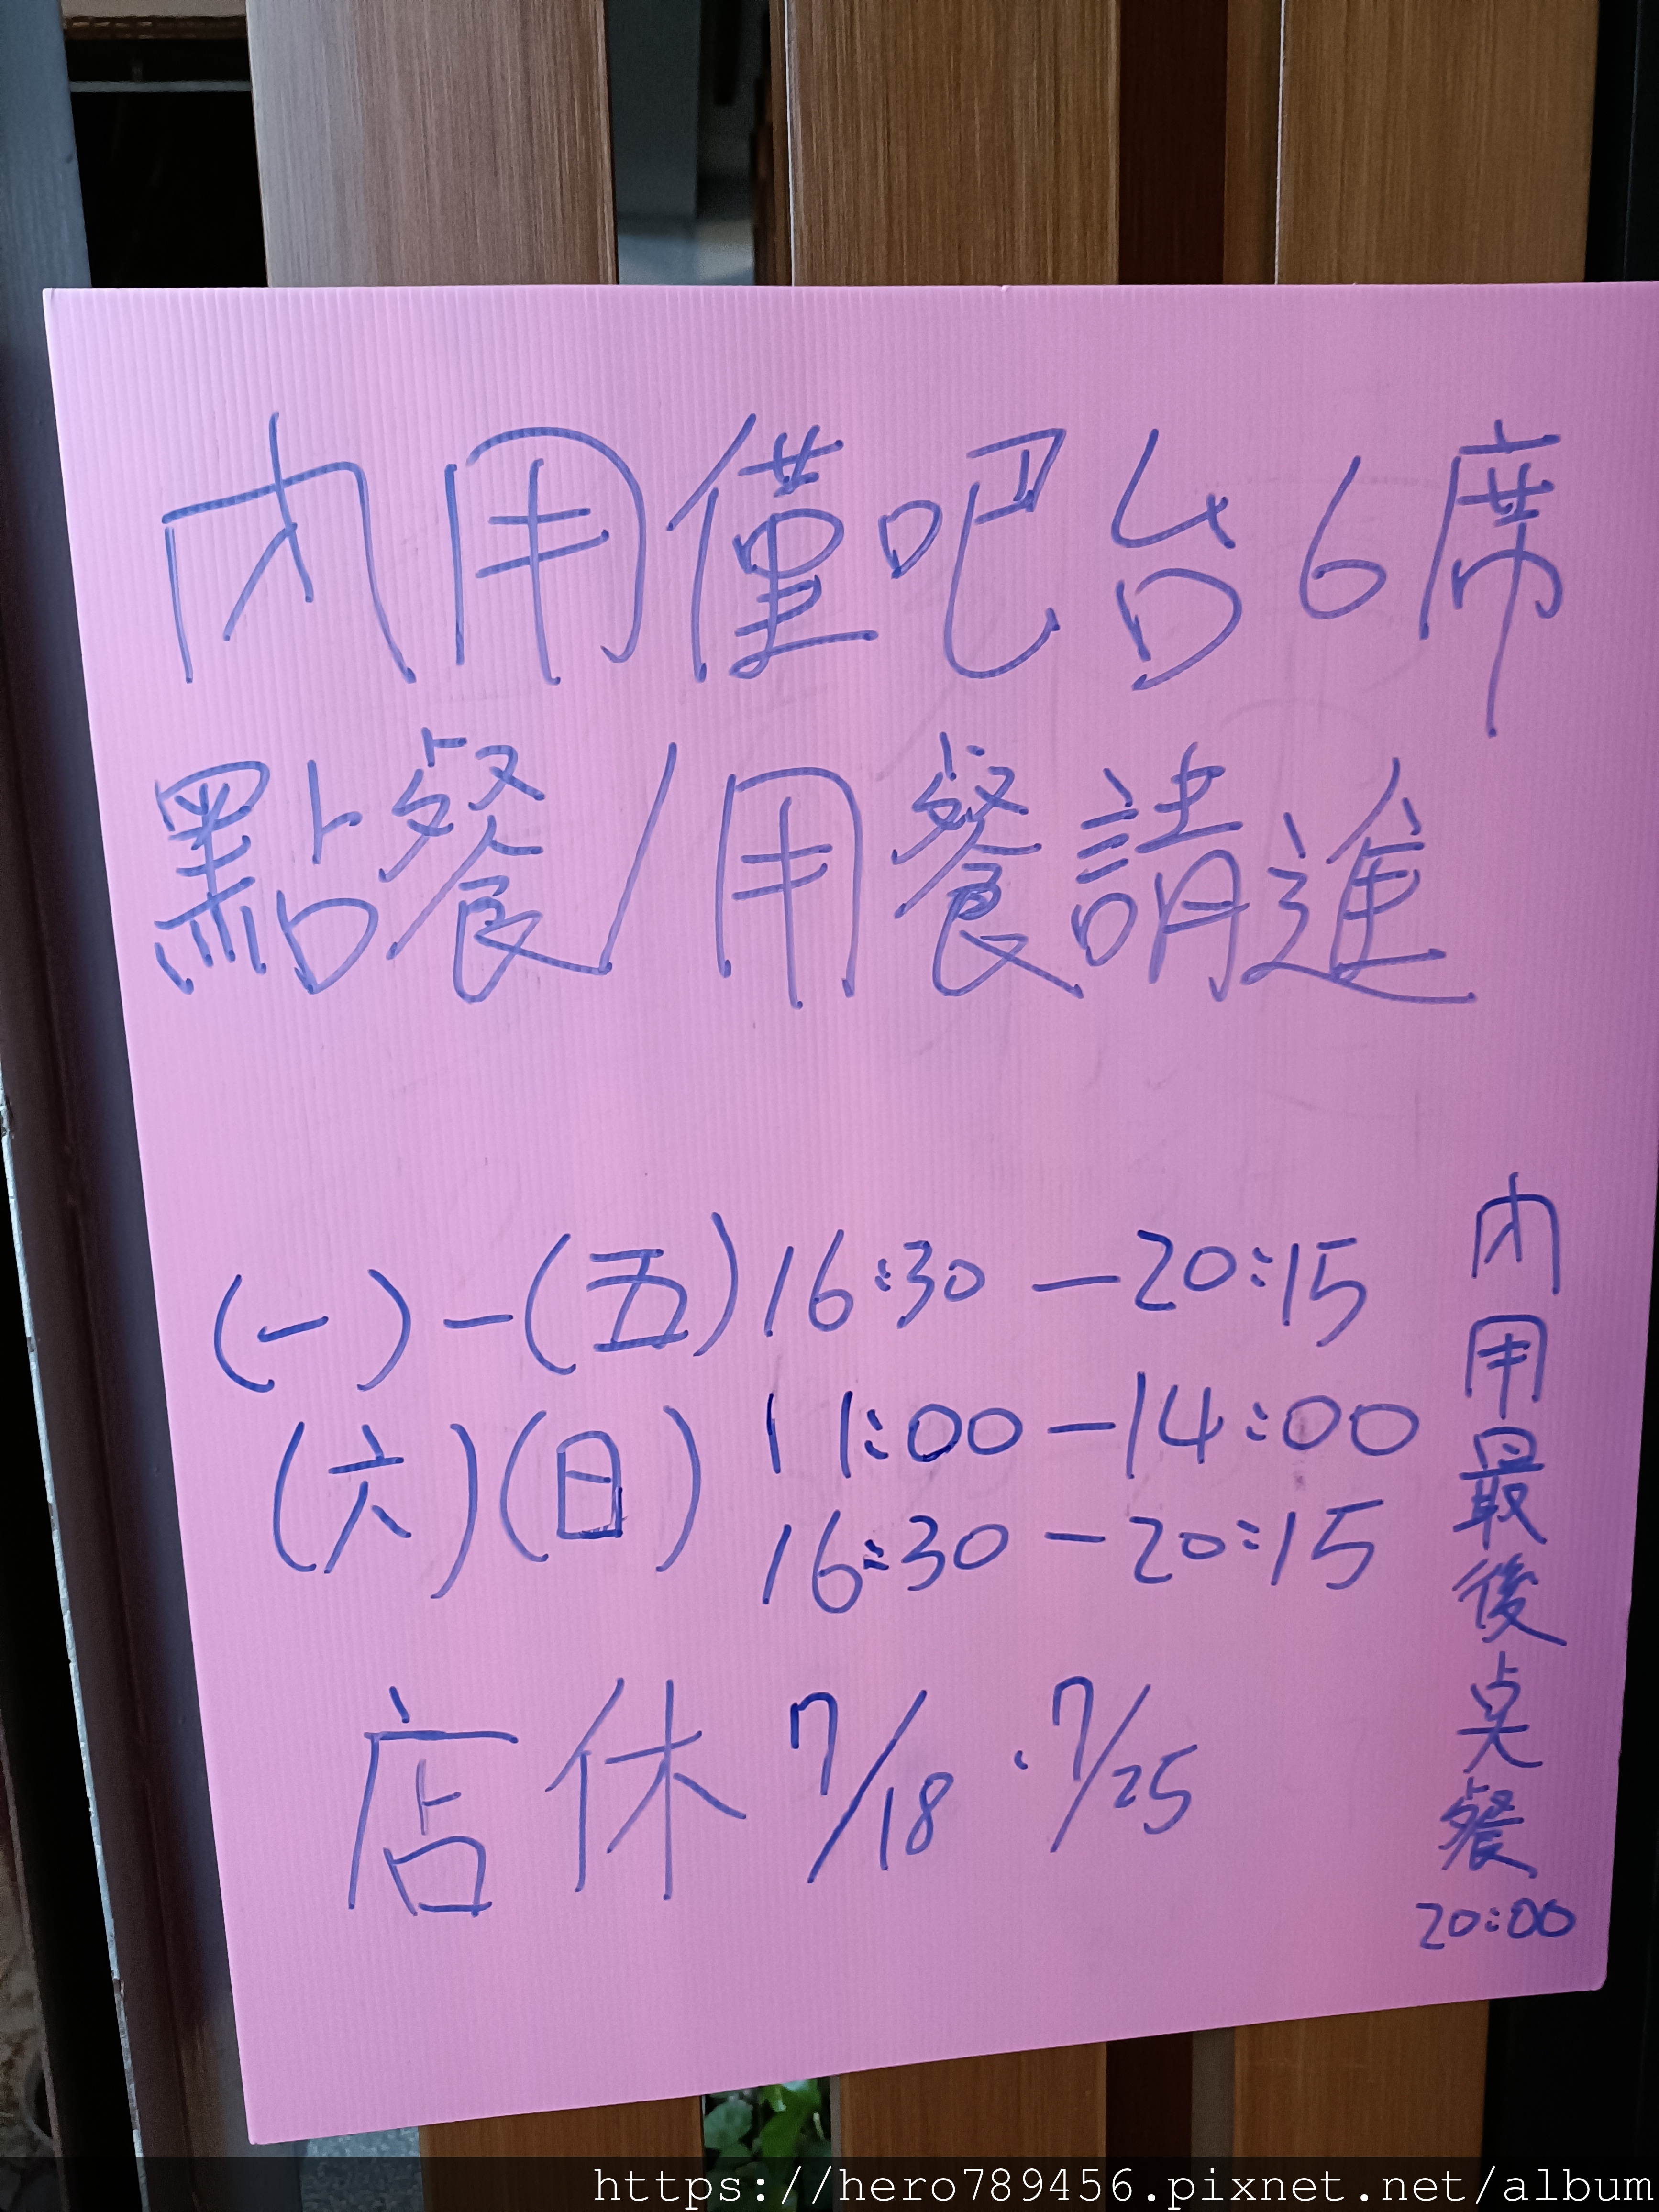 內用僅吧台6席
點餐/用餐請進
(一)-(五)16:30-20:15
(六)(日)11:00-14:00
16:30-20:15
店休7/18.7/25
內用最後点餐20:00
https://hero789456.pixnet.net/album